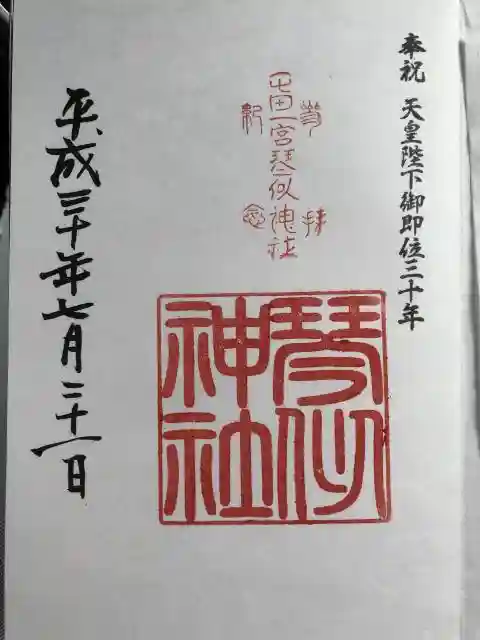 奉祝 天皇陛下御即位三十年
参拝
屯田一宮琴似神社
紀念
琴似
神社
平成三十年七月二十一日